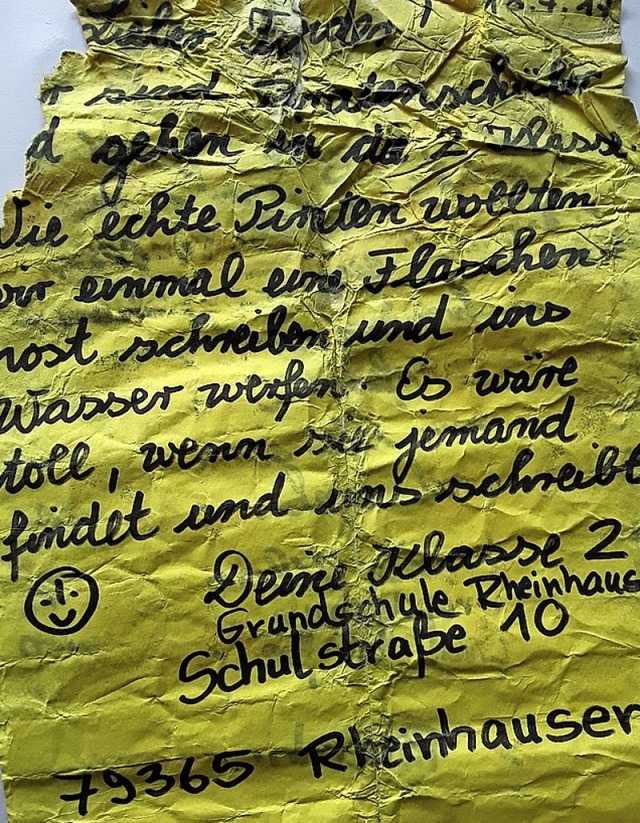 Lieber Finder, 18.7.1
r sind Piratenschüler
d gehen in die 2 Klasse
Wie echte Pirten wollten
wir einmal eine Flaschen
post schreiben und ins
Wasser werfen. Es wäre
toll, wenn sie jemand
findet und uns schreibt
Deine Klasse 2
Grundschule Rheinhaus
Schulstraße 10
79365 Rheinhausen